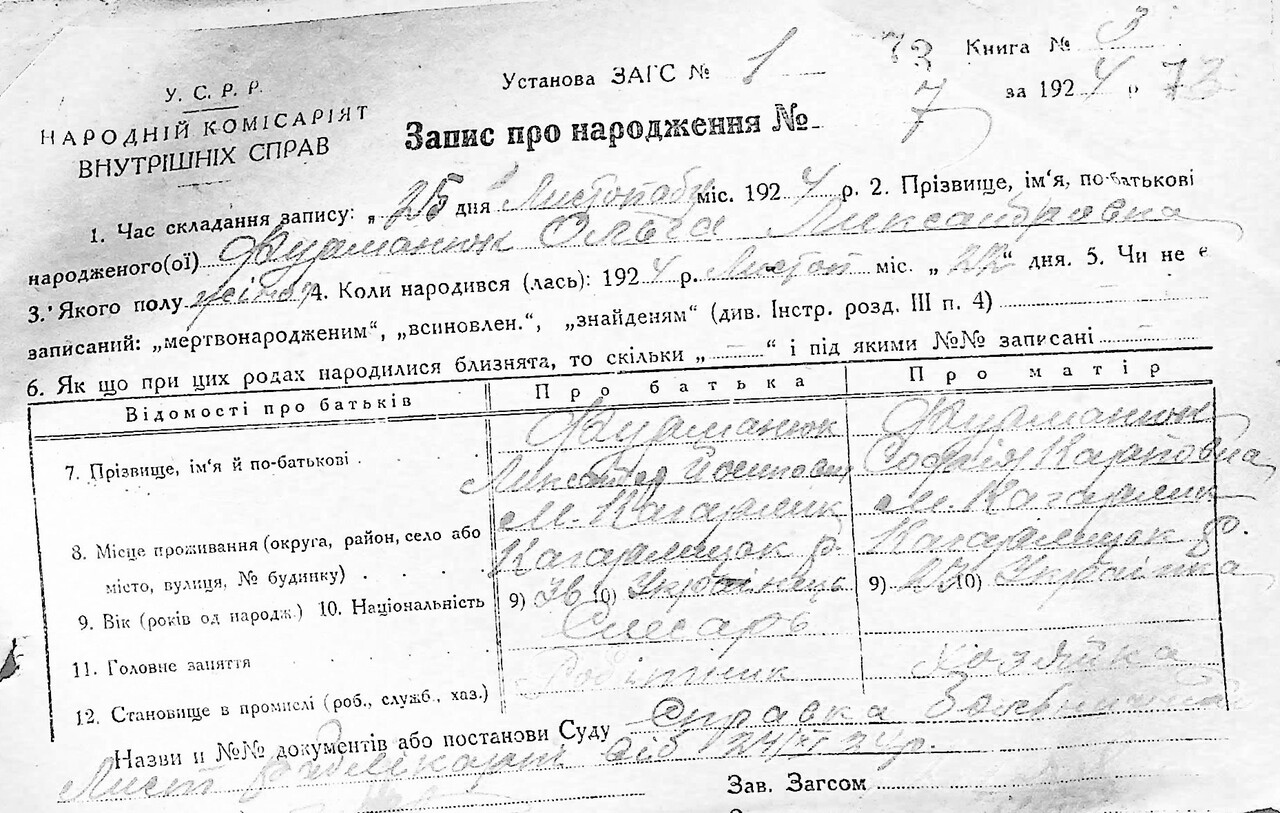 У. С. Р. Р.
НАРОДНІЙ КОМІСАРІЯТ
ВНУТРІШНІХ СПРАВ
Установа ЗАГС № 1
73
Книга № 3
за 1924 р 73
Запис про народження № 7
1. Час складання запису: „25 дня Листопаду міс. 1924 р. 2. Прізвище, ім'я, по-батькові
народженого(ої) Фурманюк Ольга Лександровна
3. Якого полу 4. Коли народився (лась): 1924 р. Листоп міс. „22" дня. 5. Чи не є
записаний: „мертвонародженим", „всиновлен.", „знайденям" (див. Інстр. розд. III п. 4)
6. Як що при цих родах народилися близнята, то скільки „ " і під якими №№ записані
Відомості про батьків Про батька Про матір
7. Прізвище, ім'я й по-батькові Фурманюк Фурманюк
Йосипович Софія Карповна
8. Місце проживання (округа, район, село або м. Кагарлик м. Кагарлик
місто, вулиця, № будинку) Кагарлицьк р. Кагарлицьк р.
9. Вік (років од народж.) 10. Національність 9) 10) Українець 9) 10) Українка
11. Головне заняття Слюсарь
12. Становище в промислі (роб., служб., хаз.) Робітник Хозяйка
Назви и №№ документів або постанови Суду Справка
Лист від 24/XI 24р.
Зав. Загсом